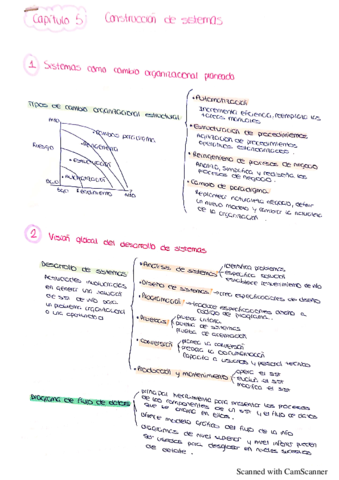 Capítulo 5: Construcción de sistemas
1 Sistemas como cambio organizacional planeado
Tipos de cambio organizacional estructural
Alto
Riesgo
Bajo
Bajo Rendimiento Alto
• Cambio paradigma
• Reingeniería
• Estructuración
• Automatización
• Automatización
Incrementa eficiencia, reemplaza las
tareas manuales
• Estructuración de procedimientos
Agilización de procedimientos
operativos estandarizados
• Reingeniería de procesos de negocio
Analiza, simplifica y rediseña los
procesos de negocio
• Cambio de paradigma
Replantear naturaleza negocio, definir
un nuevo modelo y cambiar la naturaleza
de la organización
2 Visión global del desarrollo de sistemas
Desarrollo de sistemas
Actividades involucradas
en generar una solución
de sist de info para
un problema organizacional
o una oportunidad
• Análisis de sistemas
identifica problemas
especifica solución
establece requerimientos de info
• Diseño de sistemas → crea especificaciones de diseño
• Programación → traduce especificaciones diseño a
código de programa
• Pruebas
prueba unitaria
prueba de sistemas
prueba de aceptación
• Conversión
planea la conversión
prepara la documentación
capacita a usuarios y personal técnico
• Producción y mantenimiento
opera el sist
evalúa el sist
modifica el sist
Diagrama de flujo de datos
principal herramienta para presentar los procesos
de los componentes de un sist y el flujo de datos
que se crea en ellos.
Ofrece modelo gráfico del flujo de la info
diagramas de nivel superior y nivel inferior pueden
ser usados para desglosar en niveles sucesivos
de detalle.
Scanned with CamScanner